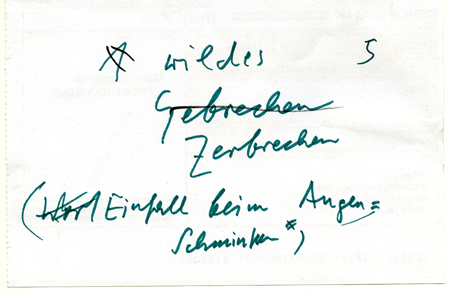 wildes 5
Gebrechen
Zerbrechen
( Einfall beim Augen=
schminken*)